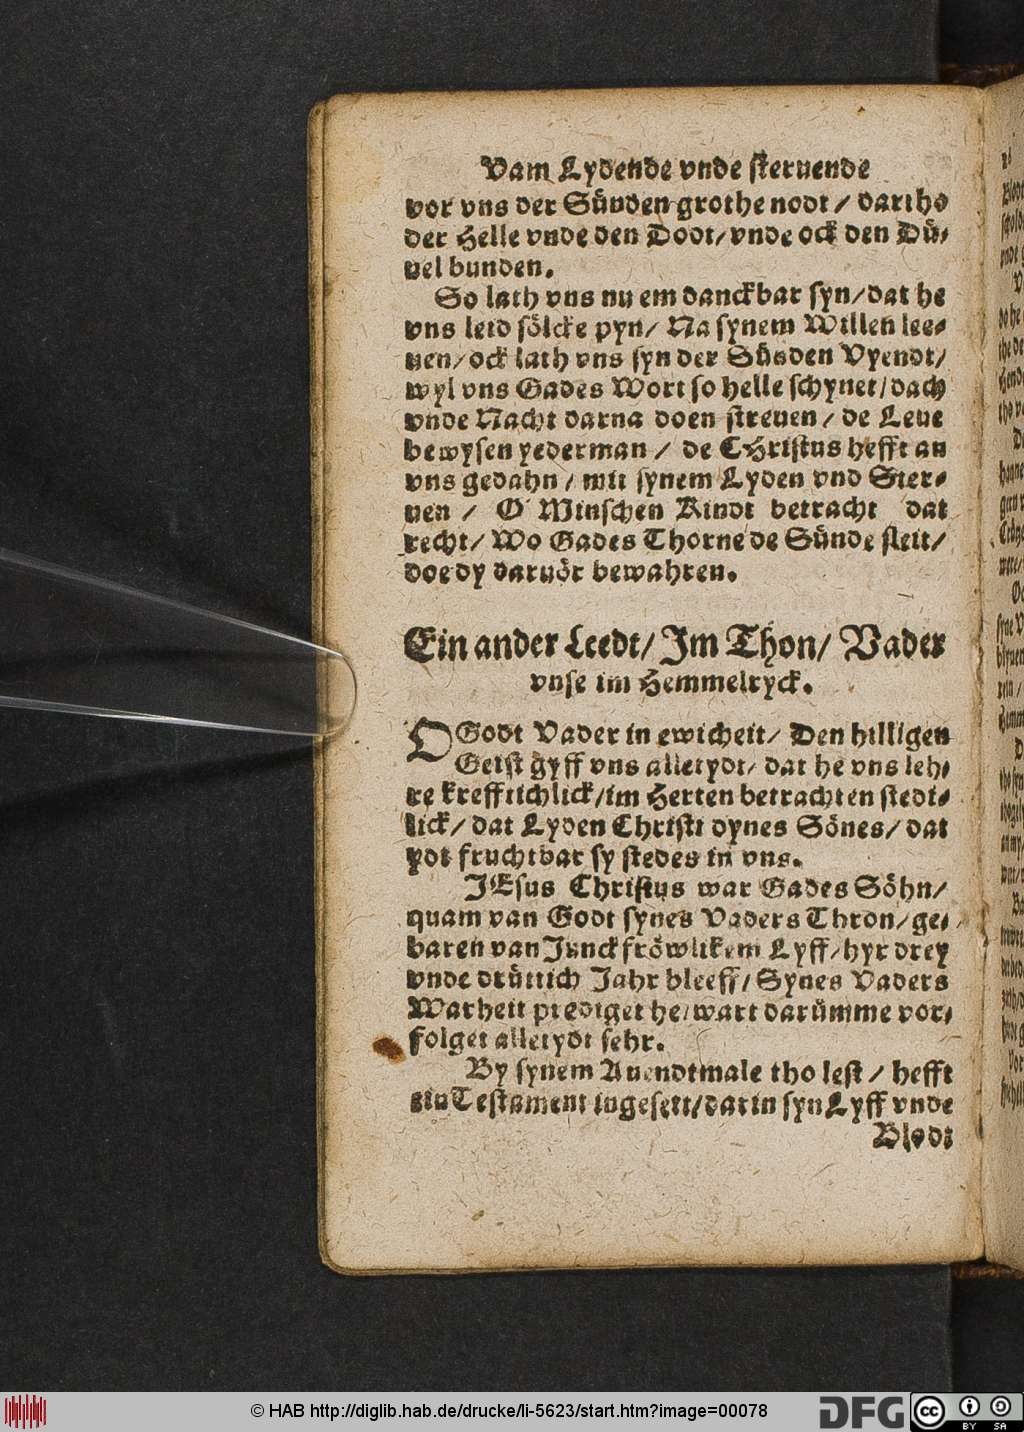 Vam Lydende vnde steruende
vor vns der Sünden grothe nodt / dartho
der Helle vnde den Dodt/ vnde ock den Dü/
uel bunden.
So lath vns nu em danckbar syn/ dat he
vns leid sölcke pyn/ Na synem Willen lee/
uen/ ock lath vns syn der Sünden Vyendt/
wyl vns Gades Wort so helle schynet/ dach
vnde Nacht darna doen streuen / de Leue
bewysen yederman / de CHristus hefft an
vns gedahn / mit synem Lyden vnd Ster/
uen / O Minschen Kindt betracht dat
recht/ Wo Gades Thorne de Sünde sleit/
doe dy daruör bewahren.
Ein ander Leedt/ Im Thon/ Vader
vnse im Hemmelryck.
O Godt Vader in ewicheit/ Den hilligen
Geist gyff vns alletydt/ dat he vns leh/
re krefftichlick/ im Herten betrachten stedt/
lick/ dat Lyden Christi dynes Sönes/ dat
ydt fruchtbar sy stedes in vns.
JEsus Christus war Gades Söhn/
quam van Godt synes Vaders Thron/ ge/
baren van Junckfröwlikem Lyff/ hyr drey
vnde drüttich Jahr bleeff/ Synes Vaders
Warheit prediget he/ wart darümme vor/
folget alletydt sehr.
By synem Auendtmale tho lest / hefft
ein Testament ingesett/ darin syn Lyff vnde
Blodt
© HAB http://diglib.hab.de/drucke/li-5623/start.htm?image=00078
DFG
cc
BY SA